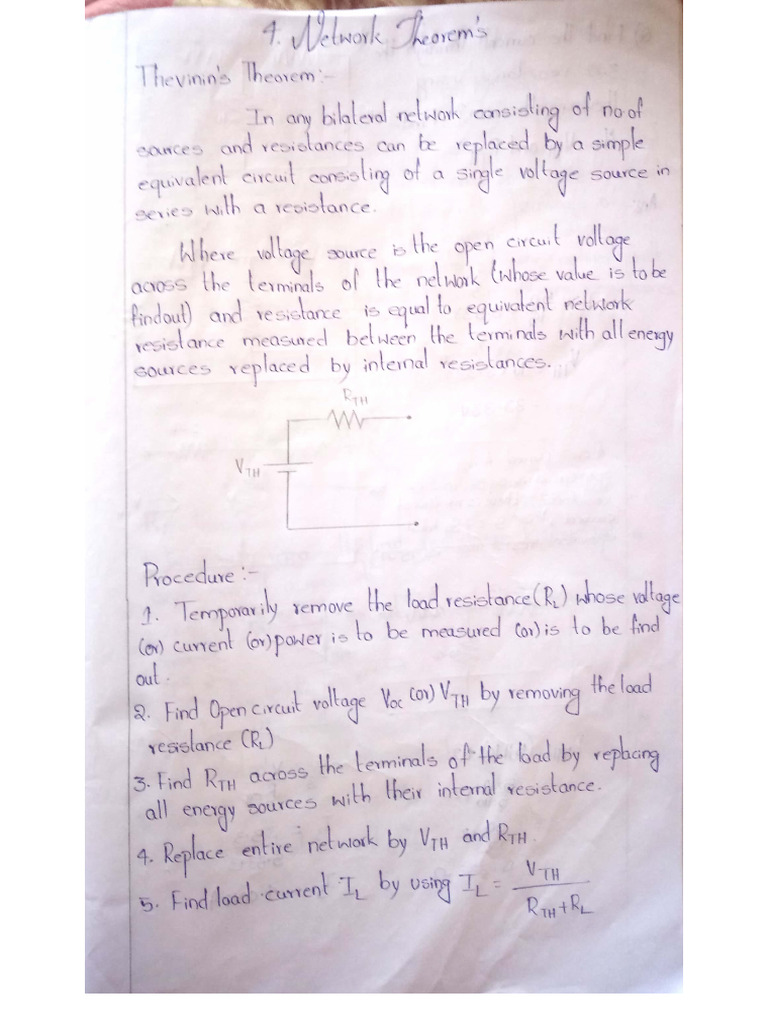 4. Network Theorem's
Thevinin's Theorem :-
In any bilateral network consisting of no of
sources and resistances can be replaced by a simple
equivalent circuit consisting of a single voltage source in
series with a resistance.
Where voltage source is the open circuit voltage
across the terminals of the network (whose value is to be
findout) and resistance is equal to equivalent network
resistance measured between the terminals with all energy
sources replaced by internal resistances.
RTH
VTH
Procedure :-
1. Temporarily remove the load resistance (RL) whose voltage
(or) current (or) power is to be measured (or) is to be find
out.
2. Find Open circuit voltage Voc (or) VTH by removing the load
resistance (RL)
3. Find RTH across the terminals of the load by replacing
all energy sources with their internal resistance.
4. Replace entire network by VTH and RTH.
5. Find load current IL by using IL = VTH
RTH + RL